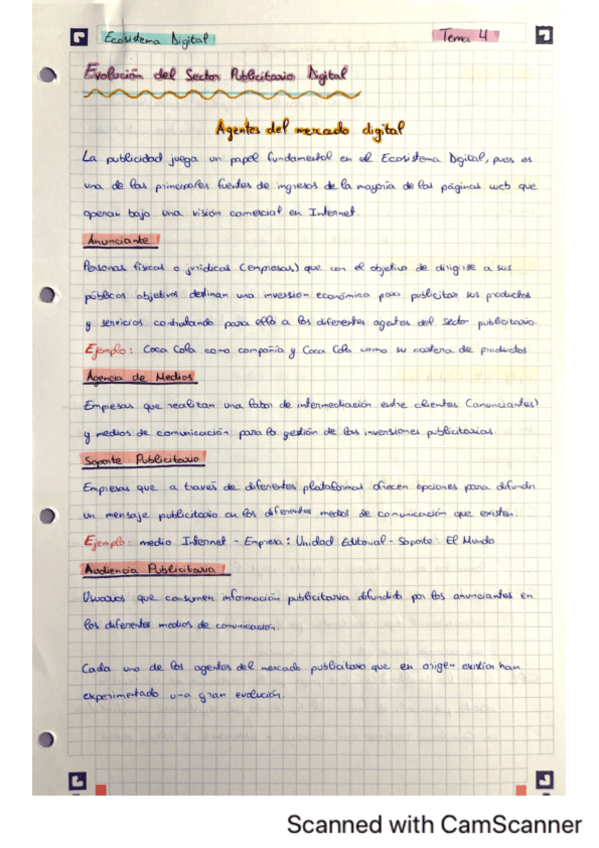 Ecosistema Digital
Tema 4
Evolución del Sector Publicitario Digital
Agentes del mercado digital
La publicidad juega un papel fundamental en el Ecosistema Digital, pues es
una de las principales fuentes de ingresos de la mayoría de las páginas web que
operan bajo una visión comercial en Internet.
Anunciante
Personas físicas o jurídicas (empresas) que con el objetivo de dirigirse a sus
públicos objetivos destinan una inversión económica para publicitar sus productos
y servicios contratando para ello a los diferentes agentes del sector publicitario.
Ejemplo: Coca Cola como compañía y Coca Cola como su cartera de productos
Agencia de Medios
Empresas que realizan una labor de intermediación entre clientes (anunciantes)
y medios de comunicación para la gestión de las inversiones publicitarias.
Soporte Publicitario
Empresas que a través de diferentes plataformas ofrecen opciones para difundir
un mensaje publicitario en los diferentes medios de comunicación que existen.
Ejemplo: medio Internet - Empresa: Unidad Editorial - Soporte: El Mundo
Audiencia Publicitaria
Usuarios que consumen información publicitaria difundida por los anunciantes en
los diferentes medios de comunicación.
Cada uno de los agentes del mercado publicitario que en origen existían han
experimentado una gran evolución.
Scanned with CamScanner